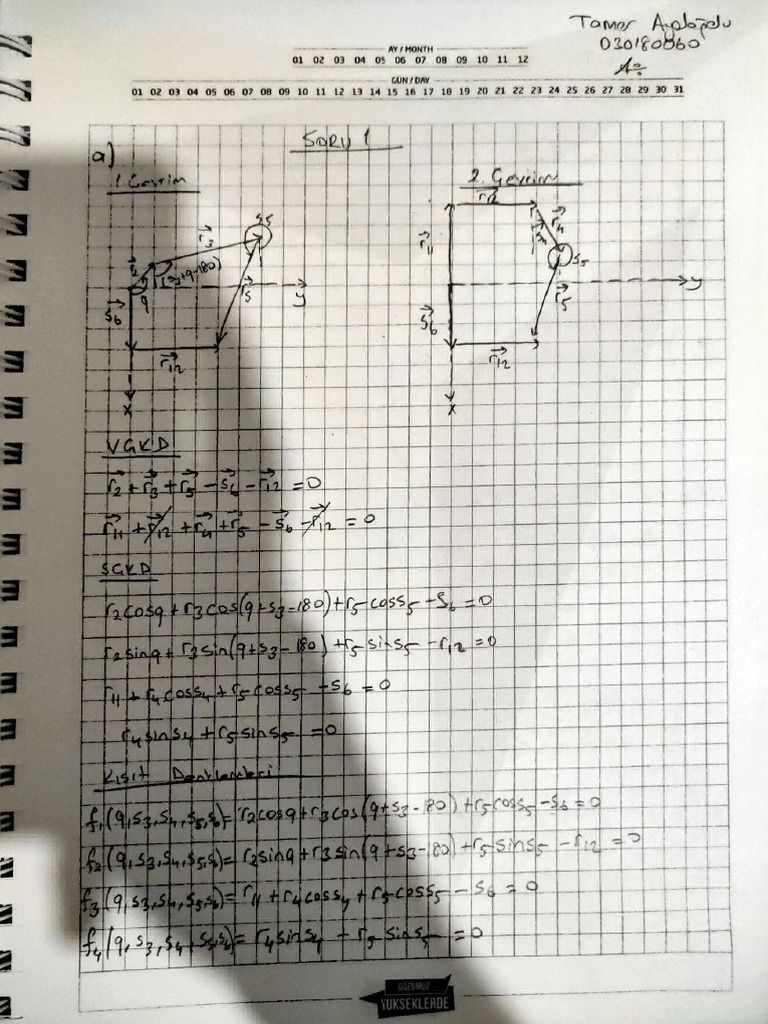 030180060
AY / MONTH
01 02 03 04 05 06 07 08 09 10 11 12
GÜN / DAY
01 02 03 04 05 06 07 08 09 10 11 12 13 14 15 16 17 18 19 20 21 22 23 24 25 26 27 28 29 30 31
SORU 1
a)
1. Çevrim
2. Çevrim
r⃗12
r⃗2
r⃗3
S5
(s3+q-180)
q
r⃗5
y
s⃗6
r⃗12
x
r⃗11
r⃗4
s4
s5
r⃗5
y
s⃗6
r⃗12
x
VGKD
r⃗2 + r⃗3 + r⃗5 - s⃗6 - r⃗12 = 0
r⃗11 + r⃗12 + r⃗4 + r⃗5 - s⃗6 - r⃗12 = 0
SGKD
r2cosq + r3cos(q+s3-180) + r5coss5 - s6 = 0
r2sinq + r3sin(q+s3-180) + r5sins5 - r12 = 0
r11 + r4coss4 + r5coss5 - s6 = 0
r4sins4 + r5sins5 = 0
Kısıt Denklemleri
f1(q,s3,s4,s5,s6) = r2cosq + r3cos(q+s3-180) + r5coss5 - s6 = 0
f2(q,s3,s4,s5,s6) = r2sinq + r3sin(q+s3-180) + r5sins5 - r12 = 0
f3(q,s3,s4,s5,s6) = r11 + r4coss4 + r5coss5 - s6 = 0
f4(q,s3,s4,s5,s6) = r4sins4 + r5sins5 = 0
GÖZÜMÜZ
YÜKSEKLERDE